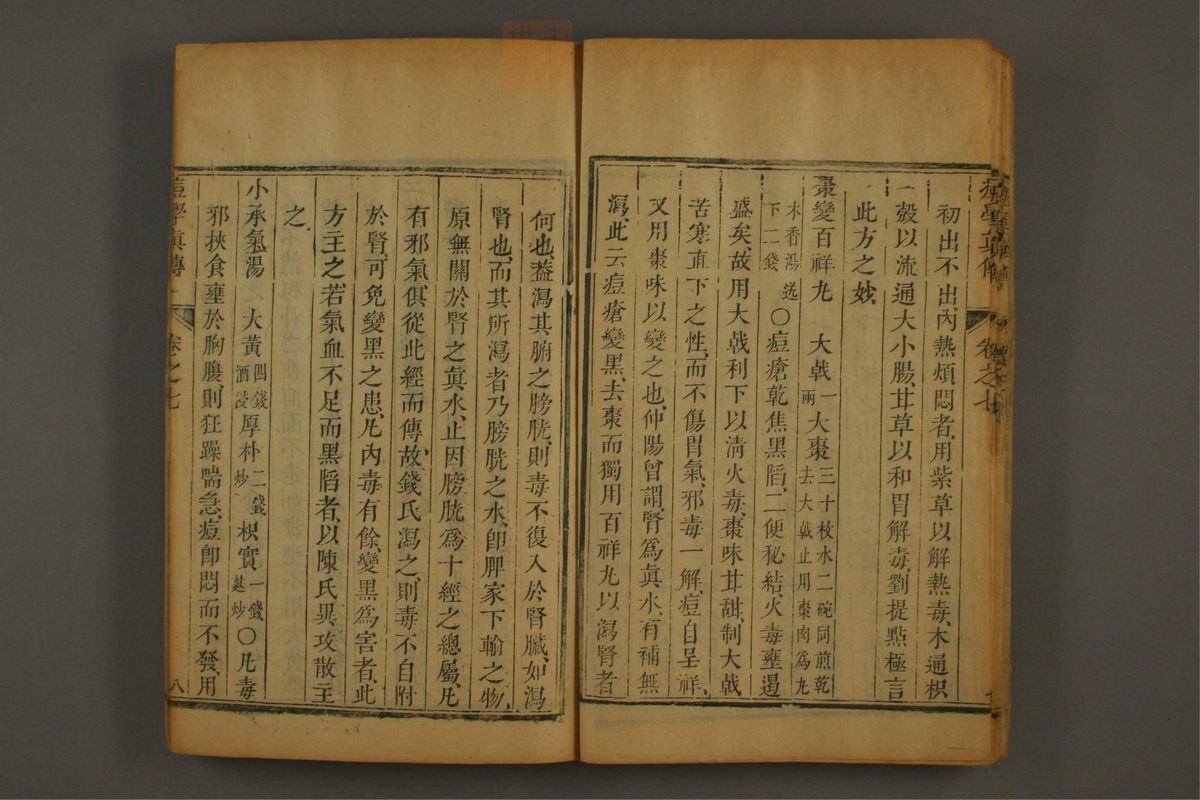 初出不出、內熱煩悶者、用紫草以解熱毒、木通枳
殼以流通大小腸、甘草以和胃解毒、劉提點極言
此方之妙、
棗變百祥丸　大戟一兩　大棗三十枚水二碗同煎乾去大戟止用棗肉為丸
木香湯送下二錢　〇痘瘡乾焦黑陷、二便秘結、火毒壅遏
盛矣、故用大戟利下以淸火毒、棗味甘甜、制大戟
苦寒直下之性、而不傷胃氣、邪毒一解、痘自呈祥、
又用棗味以變之也、仲陽曾謂、腎爲眞水、有補無
瀉、此云痘瘡變黑、去棗而獨用百祥丸以瀉腎者
何也、蓋瀉其腑之膀胱、則毒不復入於腎臟、如瀉
腎也、而其所瀉者乃膀胱之水、卽脾家下輸之物、
原無關於腎之眞水、止因膀胱爲十經之總屬、凡
有邪氣俱從此經而傳、故錢氏瀉之、則毒不自附
於腎、可免變黑之患、凡內毒有餘、變黑爲害者、此
方主之、若氣血不足而黑陷者、以陳氏異攻散主
之、
小承氣湯　大黃四錢酒浸　厚朴二錢炒　枳實一錢麩炒　〇凡毒
邪挾食壅於胸腹、則狂躁喘急、痘卽悶而不發、用
痘學眞傳　卷之七　八